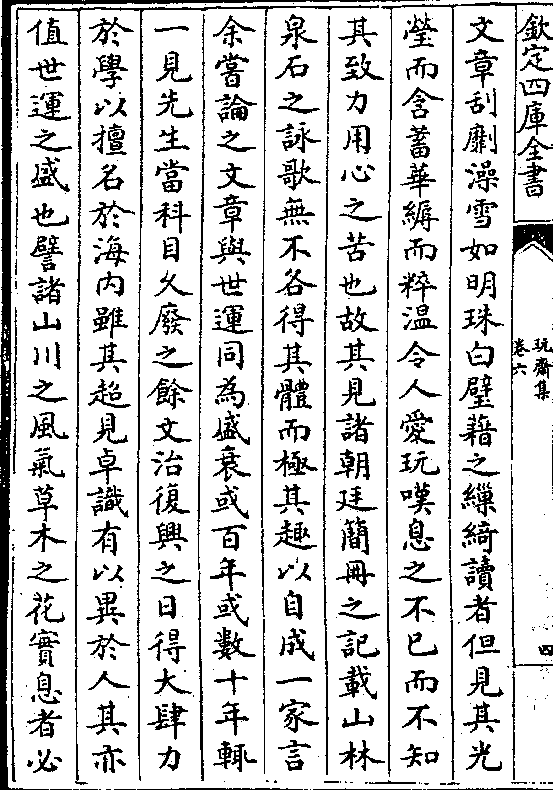 欽定四庫全書
玩齋集
卷六
四
文章刮劘澡雪如明珠白璧藉之繅綺讀者但見其光
瑩而含蓄華縟而粹溫令人愛玩嘆息之不已而不知
其致力用心之苦也故其見諸朝廷簡冊之記載山林
泉石之詠歌無不各得其體而極其趣以自成一家言
余嘗論之文章與世運同為盛衰或百年或數十年輒
一見先生當科目久廢之餘文治復興之日得大肆力
於學以擅名於海內雖其超見卓識有以異於人其亦
值世運之盛也譬諸山川之風氣草木之花實息者必